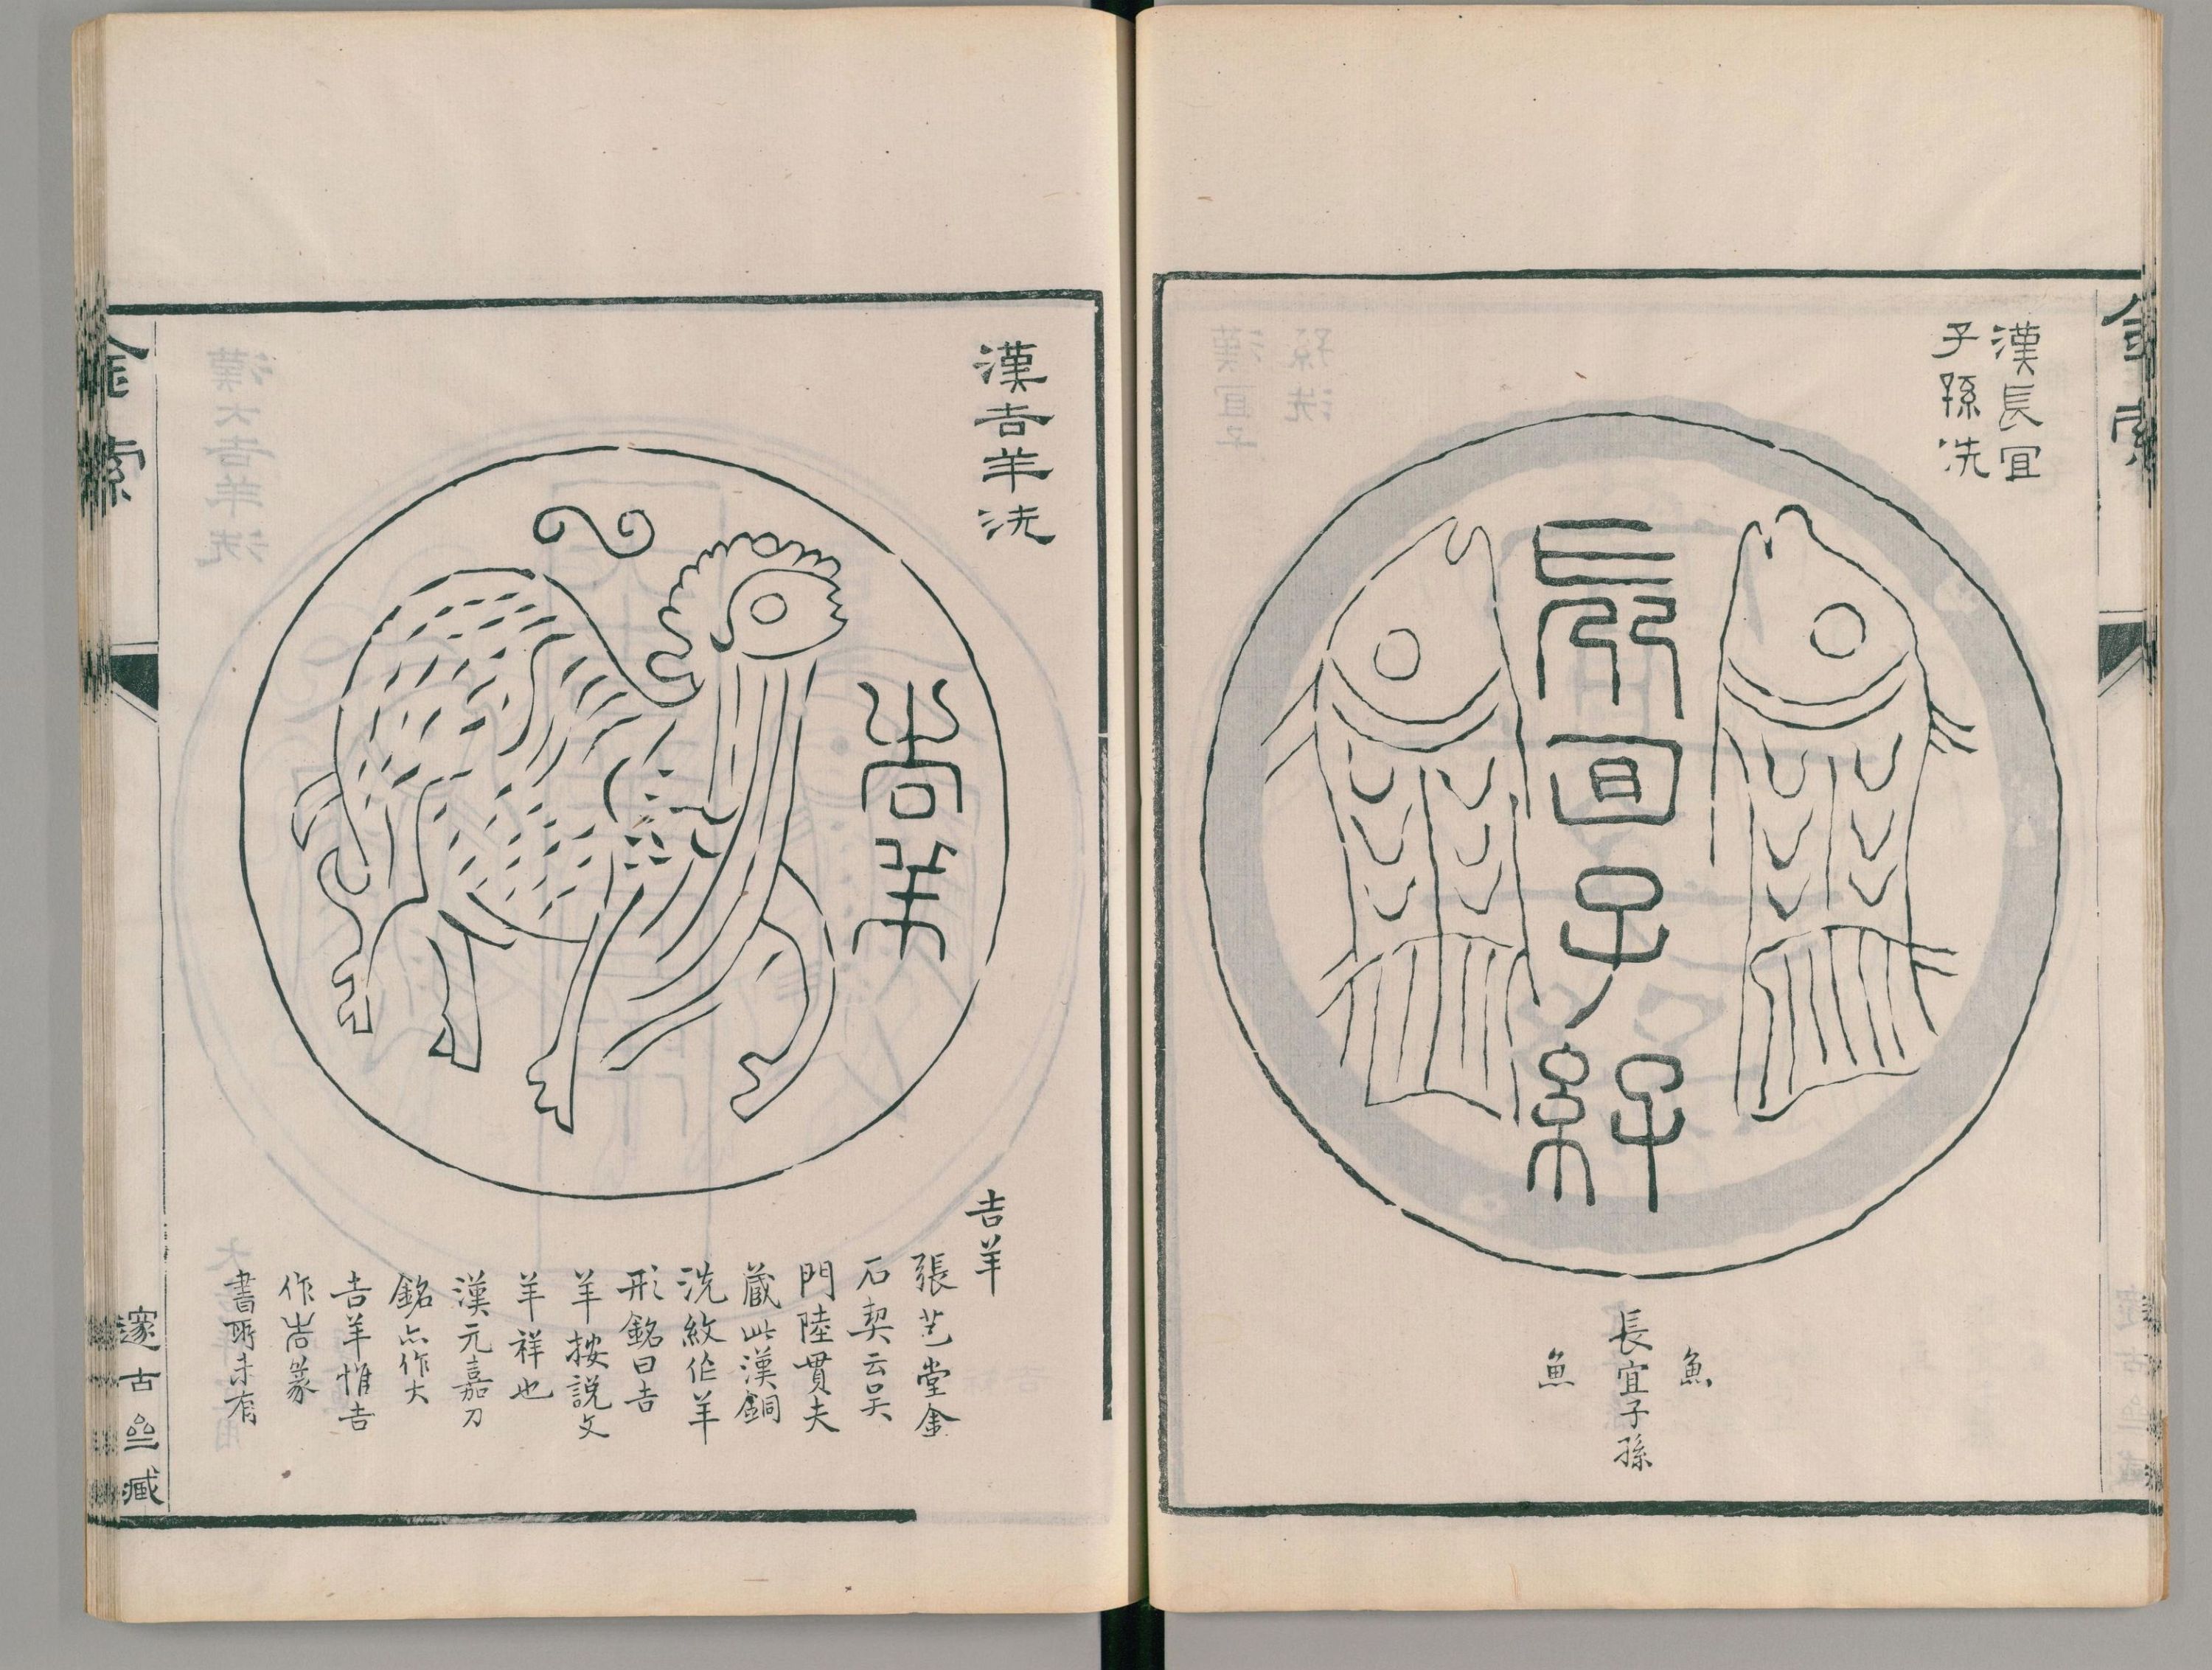 金索
漢長宜
子孫洗
長宜子孫
魚
長宜子孫
魚
漢吉羊洗
吉羊
吉羊
張芑堂金
石契云吴
門陸貫夫
蔵此漢銅
洗紋作羊
形銘曰吉
羊按説文
羊祥也
漢元嘉刀
銘亦作大
吉羊惟吉
作𠮷篆
書所未有
金索
邃古𠫭臧